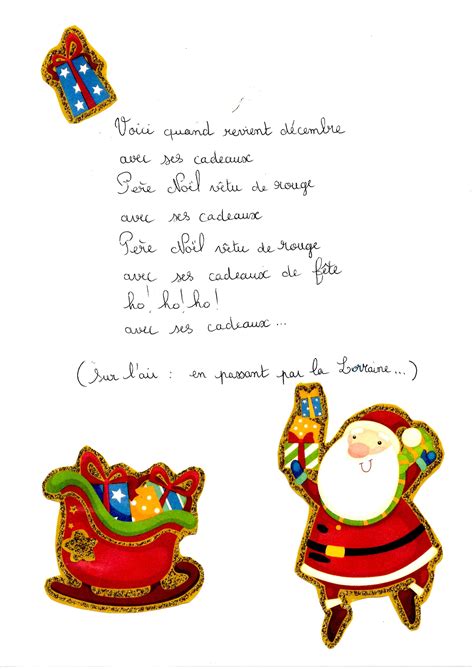 Voici quand revient décembre
avec ses cadeaux
Père Noël vêtu de rouge
avec ses cadeaux
Père Noël vêtu de rouge
avec ses cadeaux de fête
ho! ho! ho!
avec ses cadeaux...
(sur l'air : en passant par la Lorraine...)